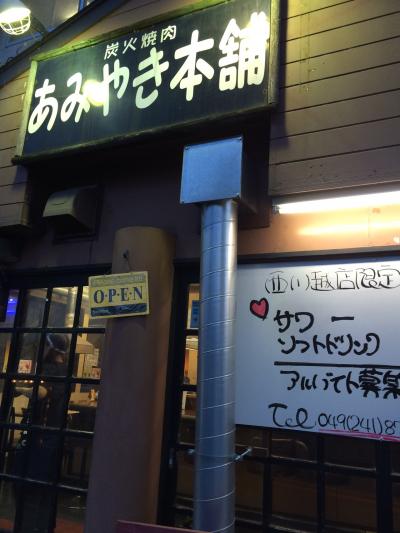 炭火焼肉
あみやき本舗
O·P·E·N
西川越店限定
サワー
ソフトドリンク
アルバイト募集
Tel 049(241)87